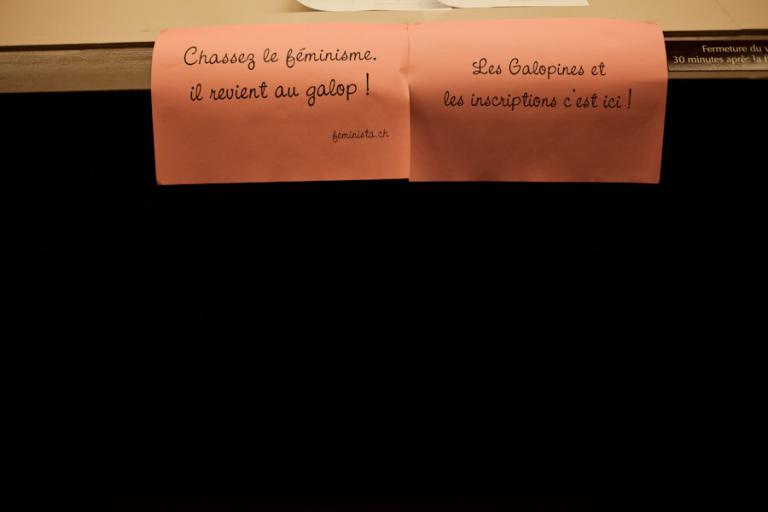 Chassez le féminisme.
il revient au galop !
feminista.ch
Les Galopines et
les inscriptions c'est ici !
Fermeture du
30 minutes après la